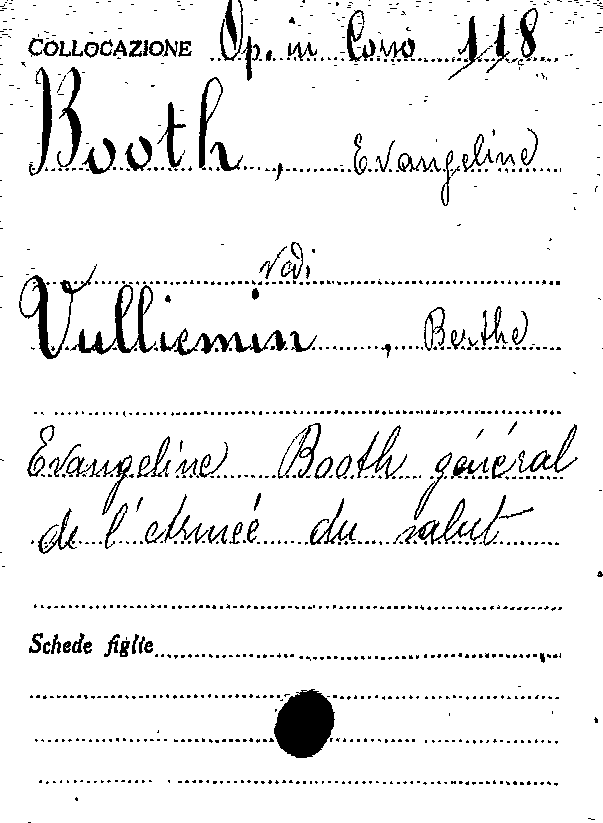 COLLOCAZIONE Op. in Corso 118
Booth, Evangeline
vedi
Vulliemin, Berthe
Evangeline Booth général
de l'Armée du salut
Schede figlie